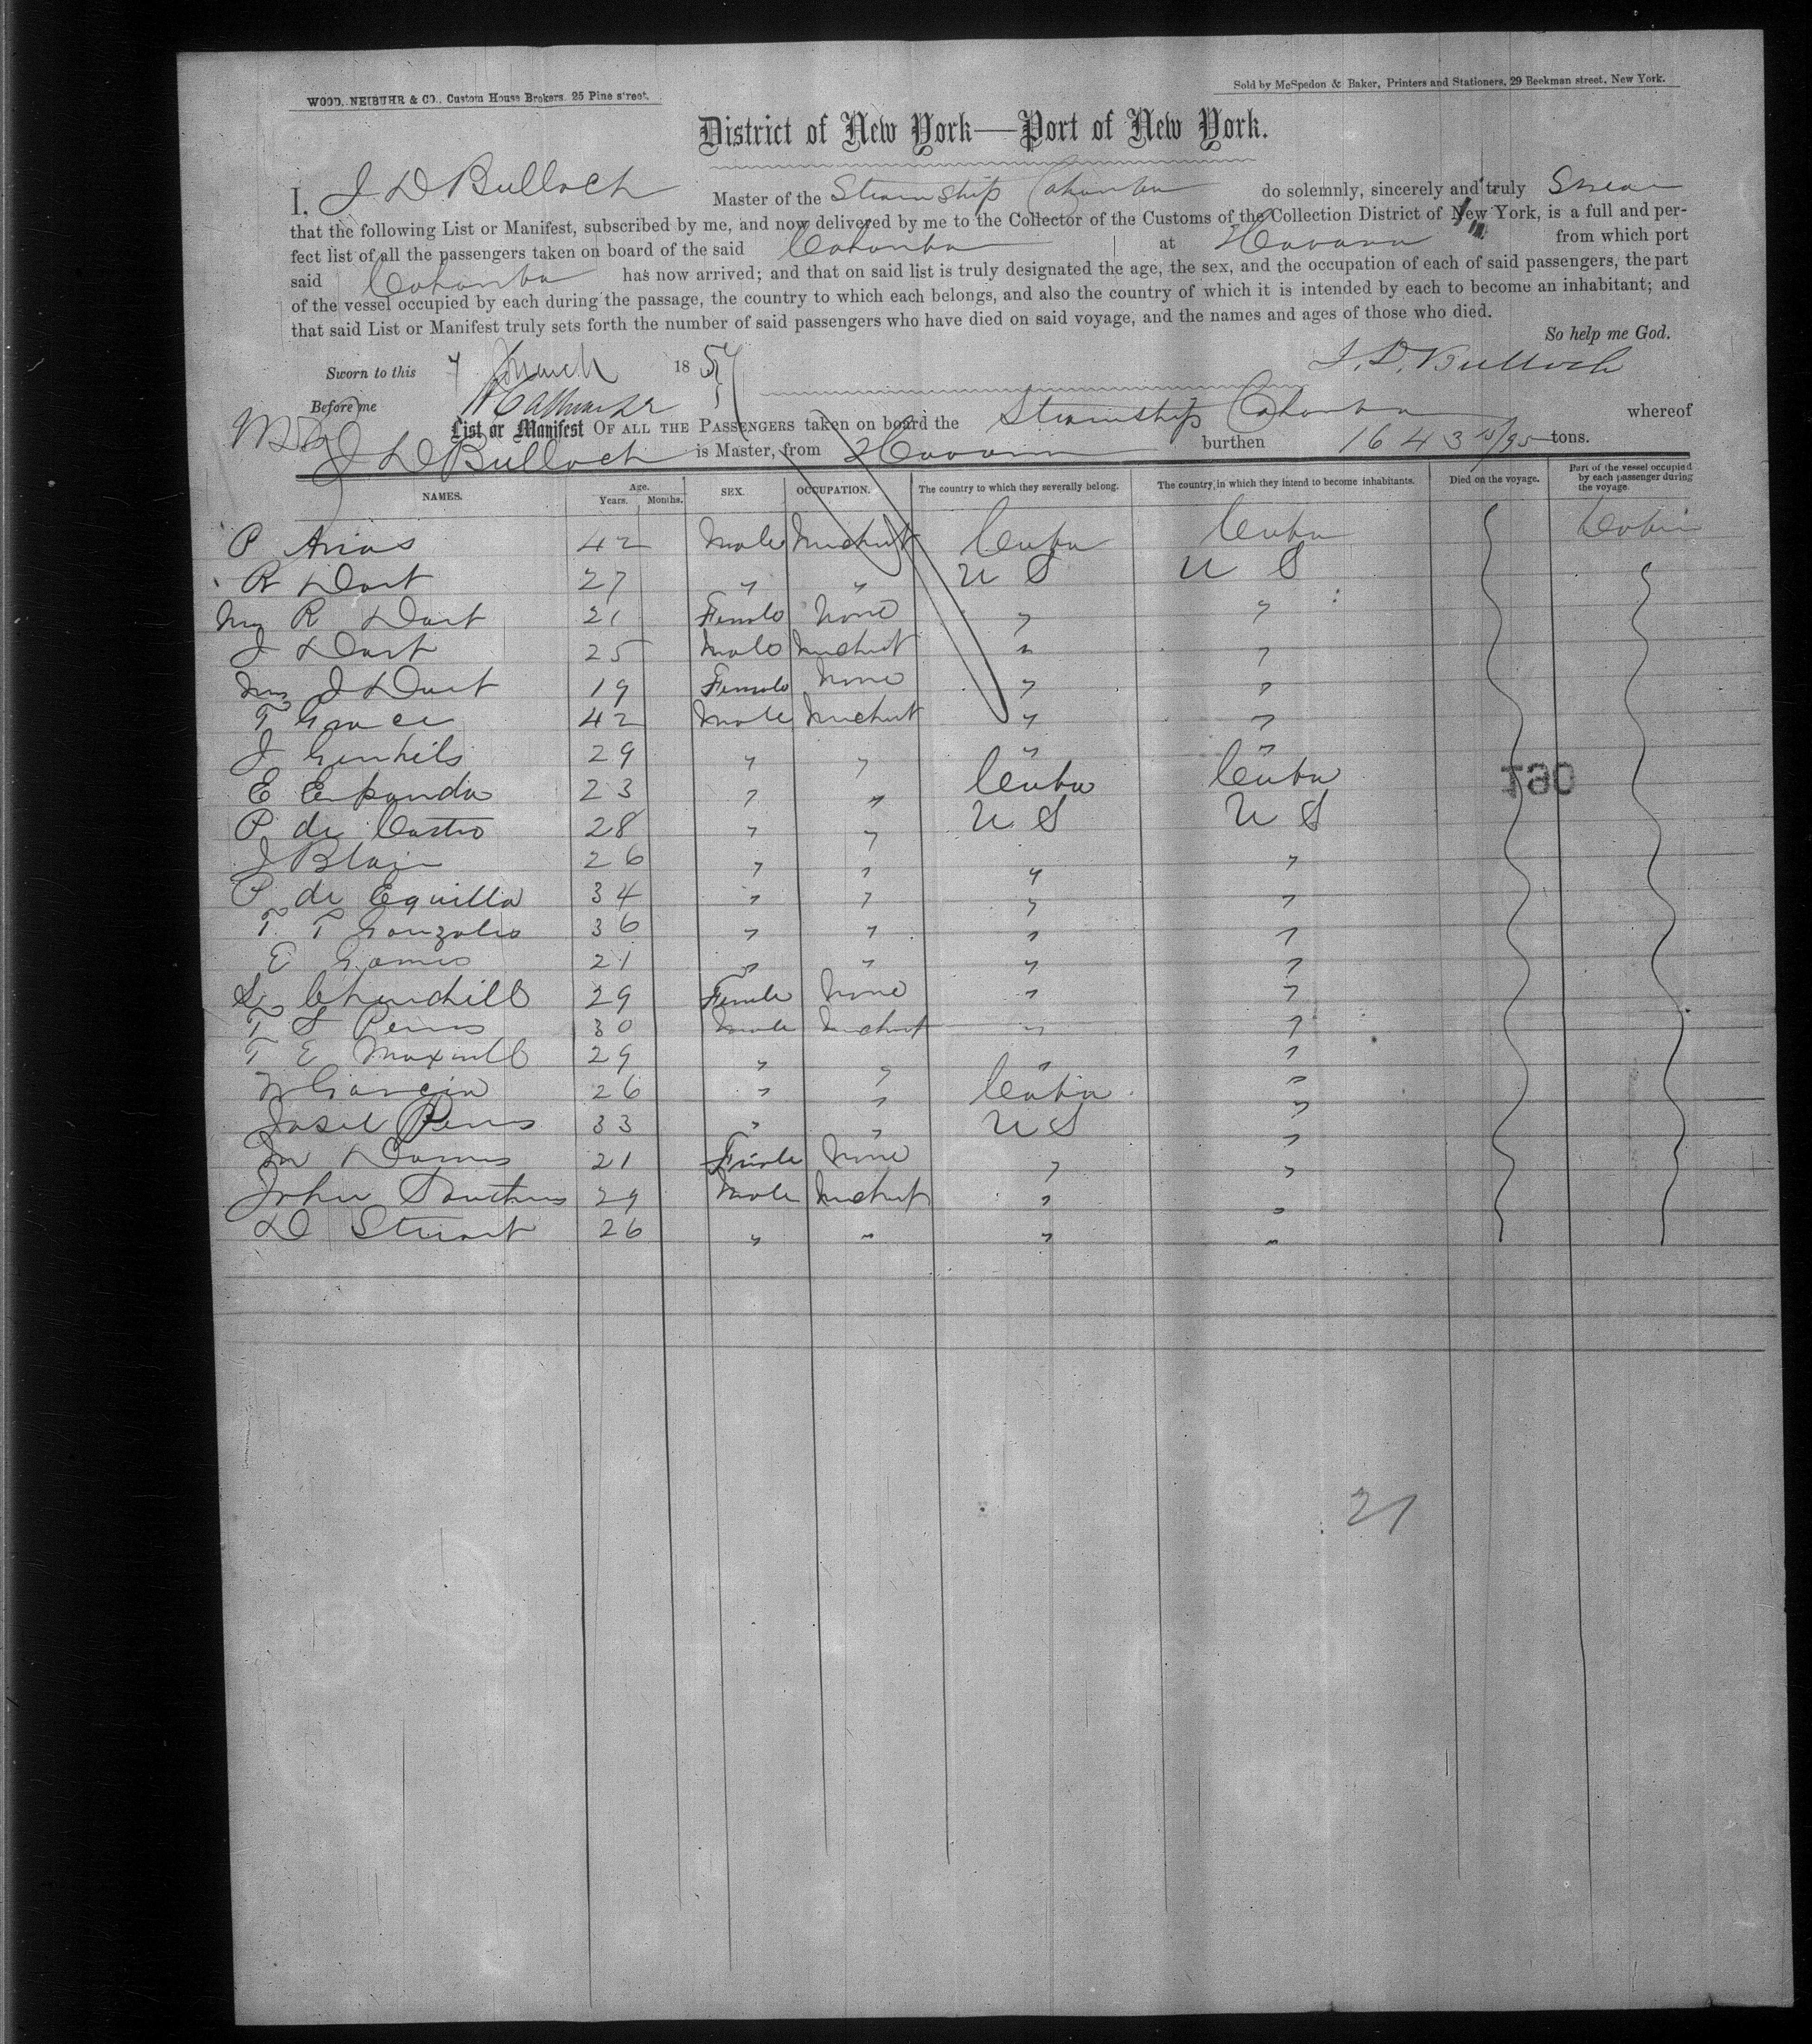 WOOD, NEIBUHR & CO., Custom House Brokers. 25 Pine street.
Sold by McSpedon & Baker, Printers and Stationers, 29 Beekman street, New York.
District of New York—Port of New York.
I, J D Bulloch Master of the Steamship Cahawba do solemnly, sincerely and truly Swear
that the following List or Manifest, subscribed by me, and now delivered by me to the Collector of the Customs of the Collection District of New York, is a full and per-
fect list of all the passengers taken on board of the said Cahawba at Havana from which port
said Cahawba has now arrived; and that on said list is truly designated the age, the sex, and the occupation of each of said passengers, the part
of the vessel occupied by each during the passage, the country to which each belongs, and also the country of which it is intended by each to become an inhabitant; and
that said List or Manifest truly sets forth the number of said passengers who have died on said voyage, and the names and ages of those who died.
So help me God.
Sworn to this 7 March 1857 J. D. Bulloch
Before me
List or Manifest OF ALL THE PASSENGERS taken on board the Steamship Cahawba whereof
J D Bulloch is Master, from Havana burthen 1643 15/95 tons.
NAMES. Age. Years. Months. SEX. OCCUPATION. The country to which they severally belong. The country in which they intend to become inhabitants. Died on the voyage. Part of the vessel occupied by each passenger during the voyage.
P Arias 42 Male Merchnt Cuba Cuba Cabin
R Dart 27 " " U S U S
Mrs R Dart 21 Female None " "
J Dart 25 Male Merchnt " "
Mrs J Dart 19 Female None " "
T Grace 42 Male Merchnt " "
J 29 " " " "
E 23 " " Cuba Cuba
P de Castro 28 " " U S U S
J Blair 26 " " " "
P de Equilla 34 " " " "
T T Gonzales 36 " " " "
E Gomes 21 " " " "
S Churchill 29 Female None " "
T S 30 Male Merchnt " "
T E Maxwell 29 " " " "
Garcia 26 " " Cuba "
33 " " U S "
21 Female None " "
John 29 Male Merchnt " "
D Stuart 26 " " " "
190
21